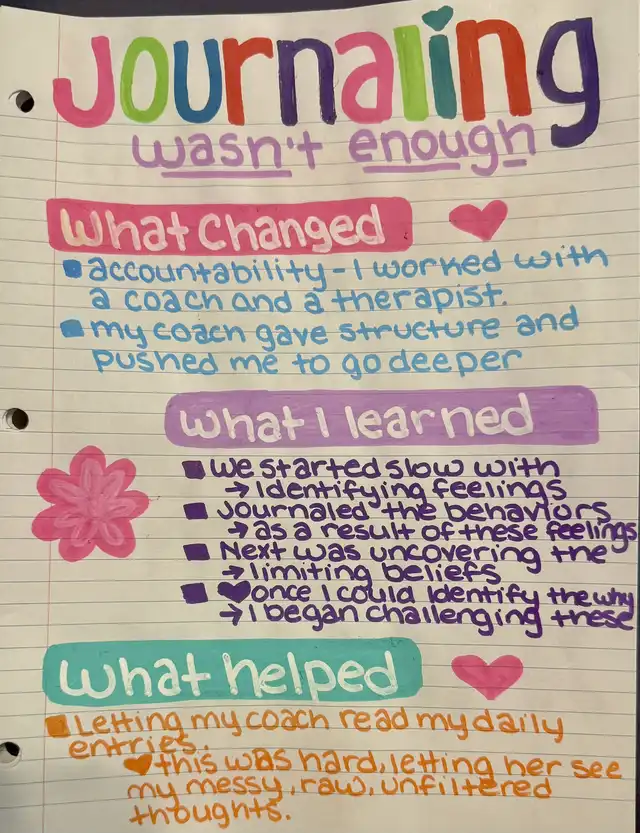 Journaling
wasn't enough
What Changed
accountability - I worked with
a coach and a therapist.
my coach gave structure and
pushed me to go deeper
What I learned
We started slow with
→ Identifying feelings
Journaled the behaviors
→ as a result of these feelings
Next was uncovering the
→ limiting beliefs
once I could Identify the why
→ I began challenging these
What helped
Letting my coach read my daily
entries.
this was hard, letting her see
my messy, raw, unfiltered
thoughts.